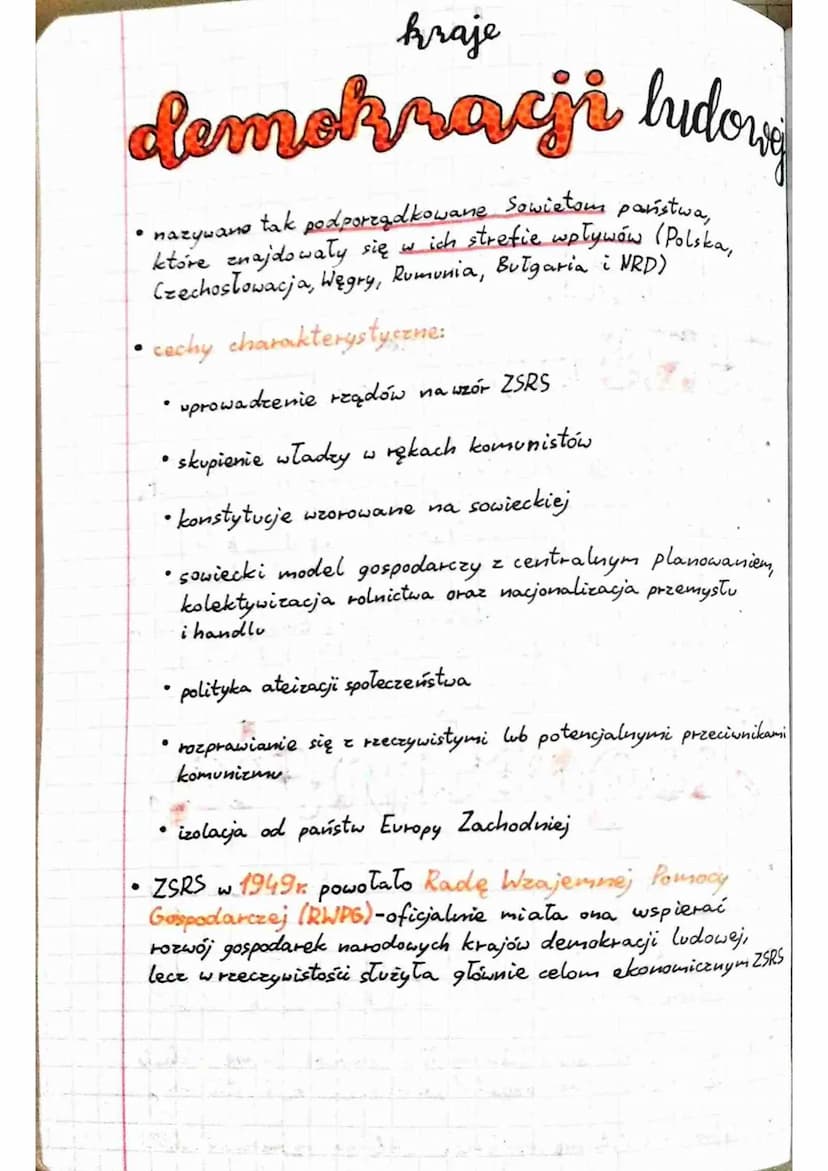 kraje
demokracji ludowej
• nazywano tak podporządkowane Sowietom państwa,
które znajdowały się w ich strefie wpływów (Polska,
Czechosłowacja, Węgry, Rumunia, Bułgaria i NRD)
• cechy charakterystyczne:
• wprowadzenie rządów na wzór ZSRS
• skupienie władzy w rękach komunistów
• konstytucje wzorowane na sowieckiej
• sowiecki model gospodarczy z centralnym planowaniem,
kolektywizacja rolnictwa oraz nacjonalizacja przemysłu
i handlu
• polityka ateizacji społeczeństwa
• rozprawianie się z rzeczywistymi lub potencjalnymi przeciwnikami
komunizmu
• izolacja od państw Europy Zachodniej
• ZSRS w 1949r. powołało Radę Wzajemnej Pomocy
Gospodarczej (RWPG)-oficjalnie miała ona wspierać
rozwój gospodarek narodowych krajów demokracji ludowej,
lecz w rzeczywistości służyła głównie celom ekonomicznym ZSRS